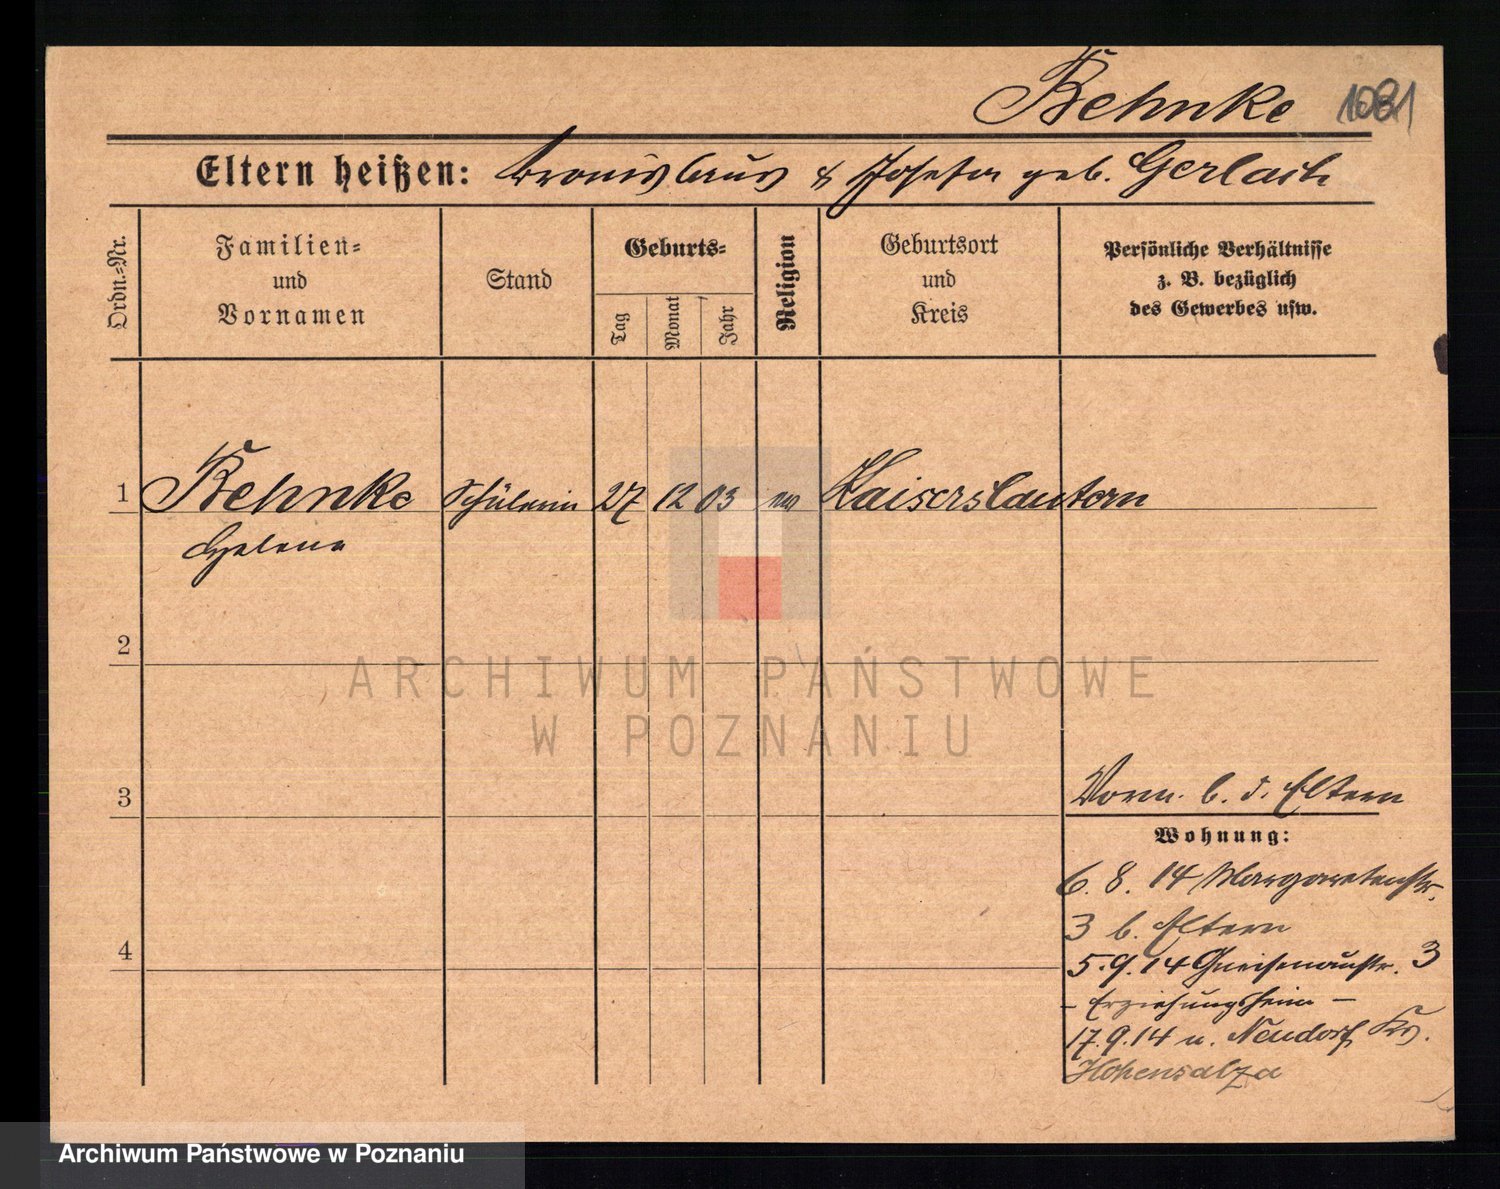 Behnke 1081
Eltern heißen: Bronislaus & Josefa geb. Gerlach
Ordn.-Nr.
Familien-
und
Vornamen
Stand
Geburts-
Tag
Monat
Jahr
Religion
Geburtsort
und
Kreis
Persönliche Verhältnisse
z. B. bezüglich
des Gewerbes usw.
1 Behnke Schülerin 27 12 03 ev Kaiserslautern
Helene
2
ARCHIWUM PAŃSTWOWE
W POZNANIU
3
Vorm. b. d. Eltern
Wohnung:
6. 8. 14 Margaretenstr.
3 b. Eltern
4
5. 9. 14 Gneisenaustr. 3
- Erziehungsheim -
17. 9. 14 n. Neudorf Krs.
Hohensalza
Archiwum Państwowe w Poznaniu